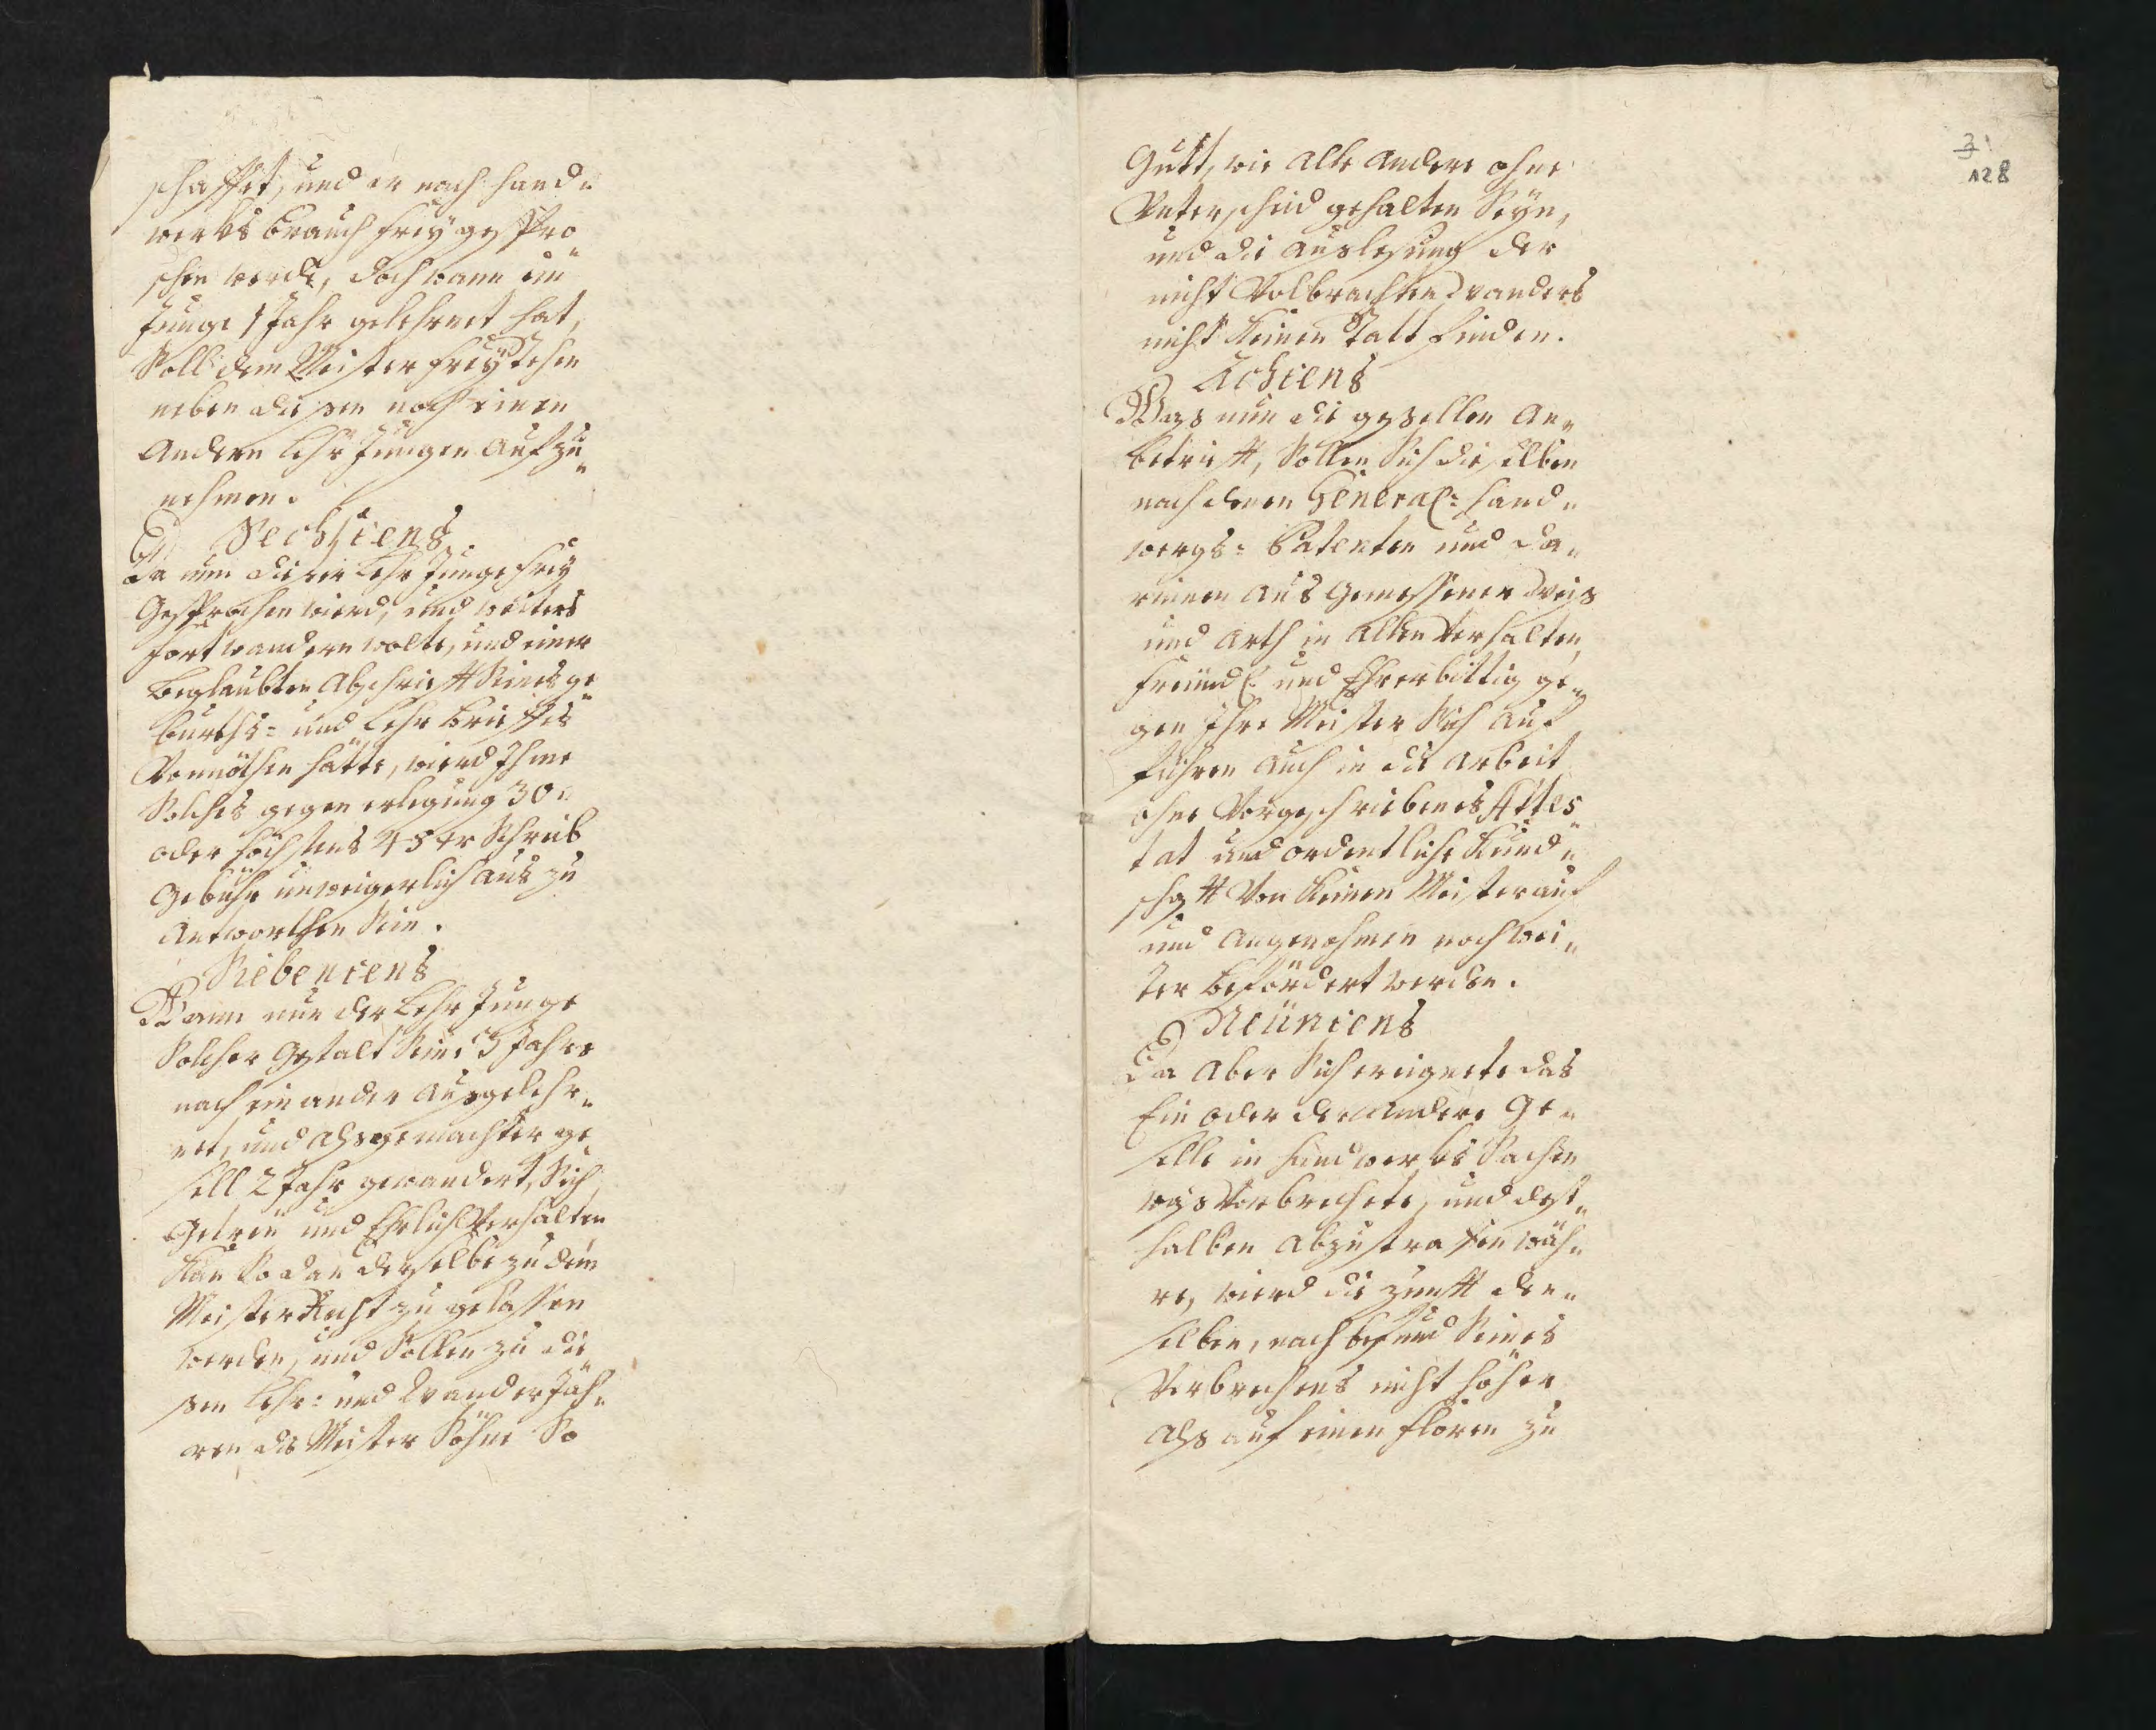 schaffet, und er nach hand„
werks brauch frey gespro„
chen werde, doch wann ein
Junge 1 Jahr gelehrnet hat,
Soll dem Meister frey stehen
neben diesen noch einen
Andern Lehr Jungen Aufzu„
nehmen.
Sechstens
Da nun dieser Lehr Junge frey
Gesprochen wierd, und weiters
fort wandern wolte, und einer
Beglaubten Abschrieft Seines ge„
burths- und Lehr Brieffes
Vonnöthen hätte, wierd Ihme
Solches gegen erlegung 30„
oder höchstens 45 xr Schreib
Gebühr unweigerlich aus zu
Antworthen Sein.
Siebentens
Wann nun der Lehr Junge
Solcher Gestalt Seine 3 Jahre
nach einander Ausgelehr„
net, und als gemachter ge„
sell 2 Jahr gewandert, Sich
Getreü und Ehrlich Verhalten
Kan So dan derselbe zu dem
Meister Recht zu gelassen
werden, und Sollen zu die„
sen Lehr: und Wander Jah„
ren die Meister Söhne So
3
128
Gutt, wie Alle Andere ohne
Unterschied gehalten Seyn,
und die Auslesung der
nicht Volbrachten Wanders
nicht keinen Statt finden.
Achtens
Was nun die gesellen An„
betriefft, Sollen Sich dieselben
nach denen General: Hand„
wergs: Patenten und da„
rinnen Aus Gemessener Weis
und Arth in Allen Verhalten,
freündl: und Ehrerbittig ge„
gen Ihre Meister Sich Auf
führen Auch in die Arbeit
ohne Vorgeschriebenes Attes„
tat und ordentliche Kund„
schafft Von keinen Meister auf
und Angenohmen noch wei„
ter Befördert werden.
Neüntens
Da Aber Sich ereignete das
Ein oder der Andere Ge„
selle in Handwerks Sachen
was Verbrechete, und dest„
halben Abzustraffen wäh„
re, wierd die Zunfft den„
selben, nach befund Seines
Verbrechens nicht höher
Als auf einen floren zu